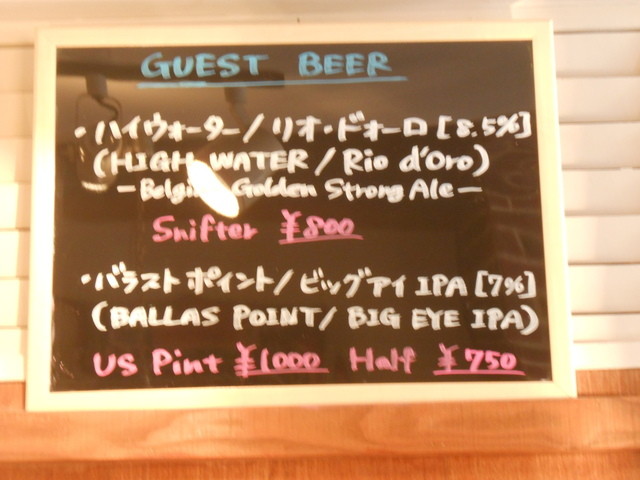 GUEST BEER
・ハイウォーター/リオ・ドォーロ [8.5%]
(HIGH WATER / Rio d'Oro)
-Belgian Golden Strong Ale-
Snifter ¥800
・バラストポイント/ビッグアイ IPA [7%]
(BALLAS POINT/ BIG EYE IPA)
US Pint ¥1000 Half ¥750